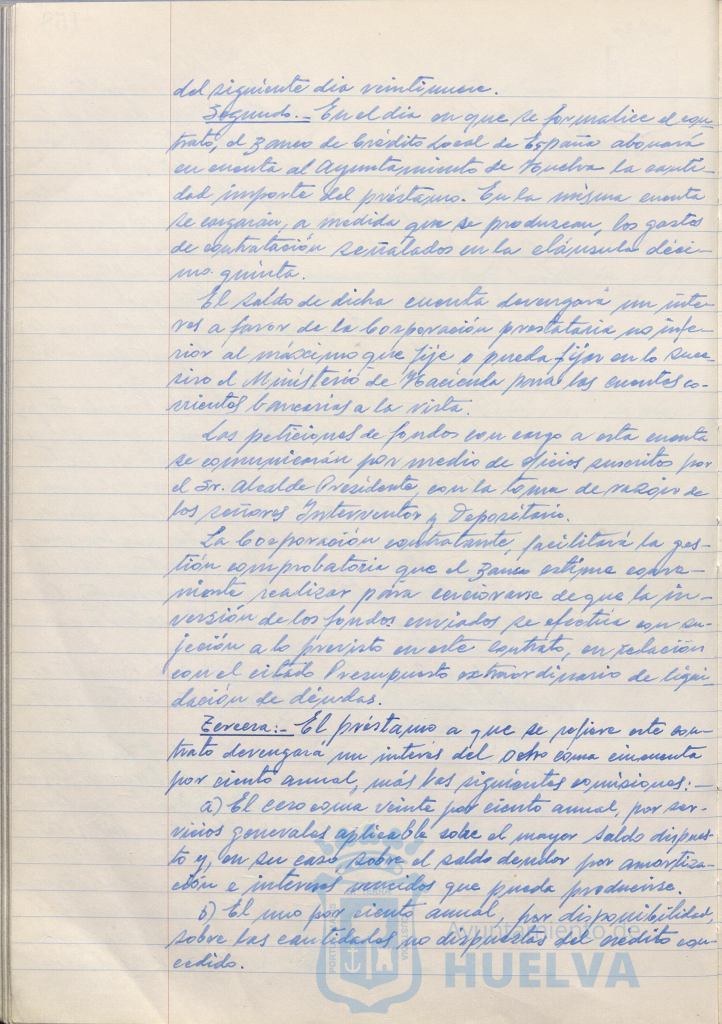 del siguiente dia veintinueve.
Segundo.- En el dia en que se formalice el con-
trato, el Banco de Crédito Local de España abonará
en cuenta al Ayuntamiento de Huelva la canti-
dad importe del préstamo. En la misma cuenta
se cargarán, a medida que se produzcan, los gastos
de contratación señalados en la cláusula déci-
mo quinta.
El saldo de dicha cuenta devengará un inte-
res a favor de la Corporación prestataria no infe-
rior al máximo que fije o pueda fijar en lo suce-
sivo el Ministerio de Hacienda para las cuentas co-
rrientes bancarias a la vista.
Las peticiones de fondos con cargo a esta cuenta
se comunicarán por medio de oficios suscritos por
el Sr. Alcalde Presidente, con la toma de razón de
los señores Interventor y Depositario.
La Corporación contratante, facilitará la ges-
tión comprobatoria que el Banco estime conve-
niente realizar para cerciorarse de que la in-
versión de los fondos enviados se efectúa con su-
jección a lo previsto en este contrato, en relación
con el citado Presupuesto extraordinario de liqui-
dación de deudas.
Tercera:- El préstamo a que se refiere este con-
trato devengará un interés del ocho coma cincuenta
por ciento anual, más las siguientes comisiones:-
a) El cero coma veinte por ciento anual, por ser-
vicios generales aplicable sobre el mayor saldo dispues-
to y, en su caso, sobre el saldo deudor por amortiza-
ción e intereses vencidos que pueda producirse.
b) El uno por ciento anual, por disponibilidad,
sobre las cantidades no dispuestas del crédito con-
cedido.
Ayuntamiento de
HUELVA